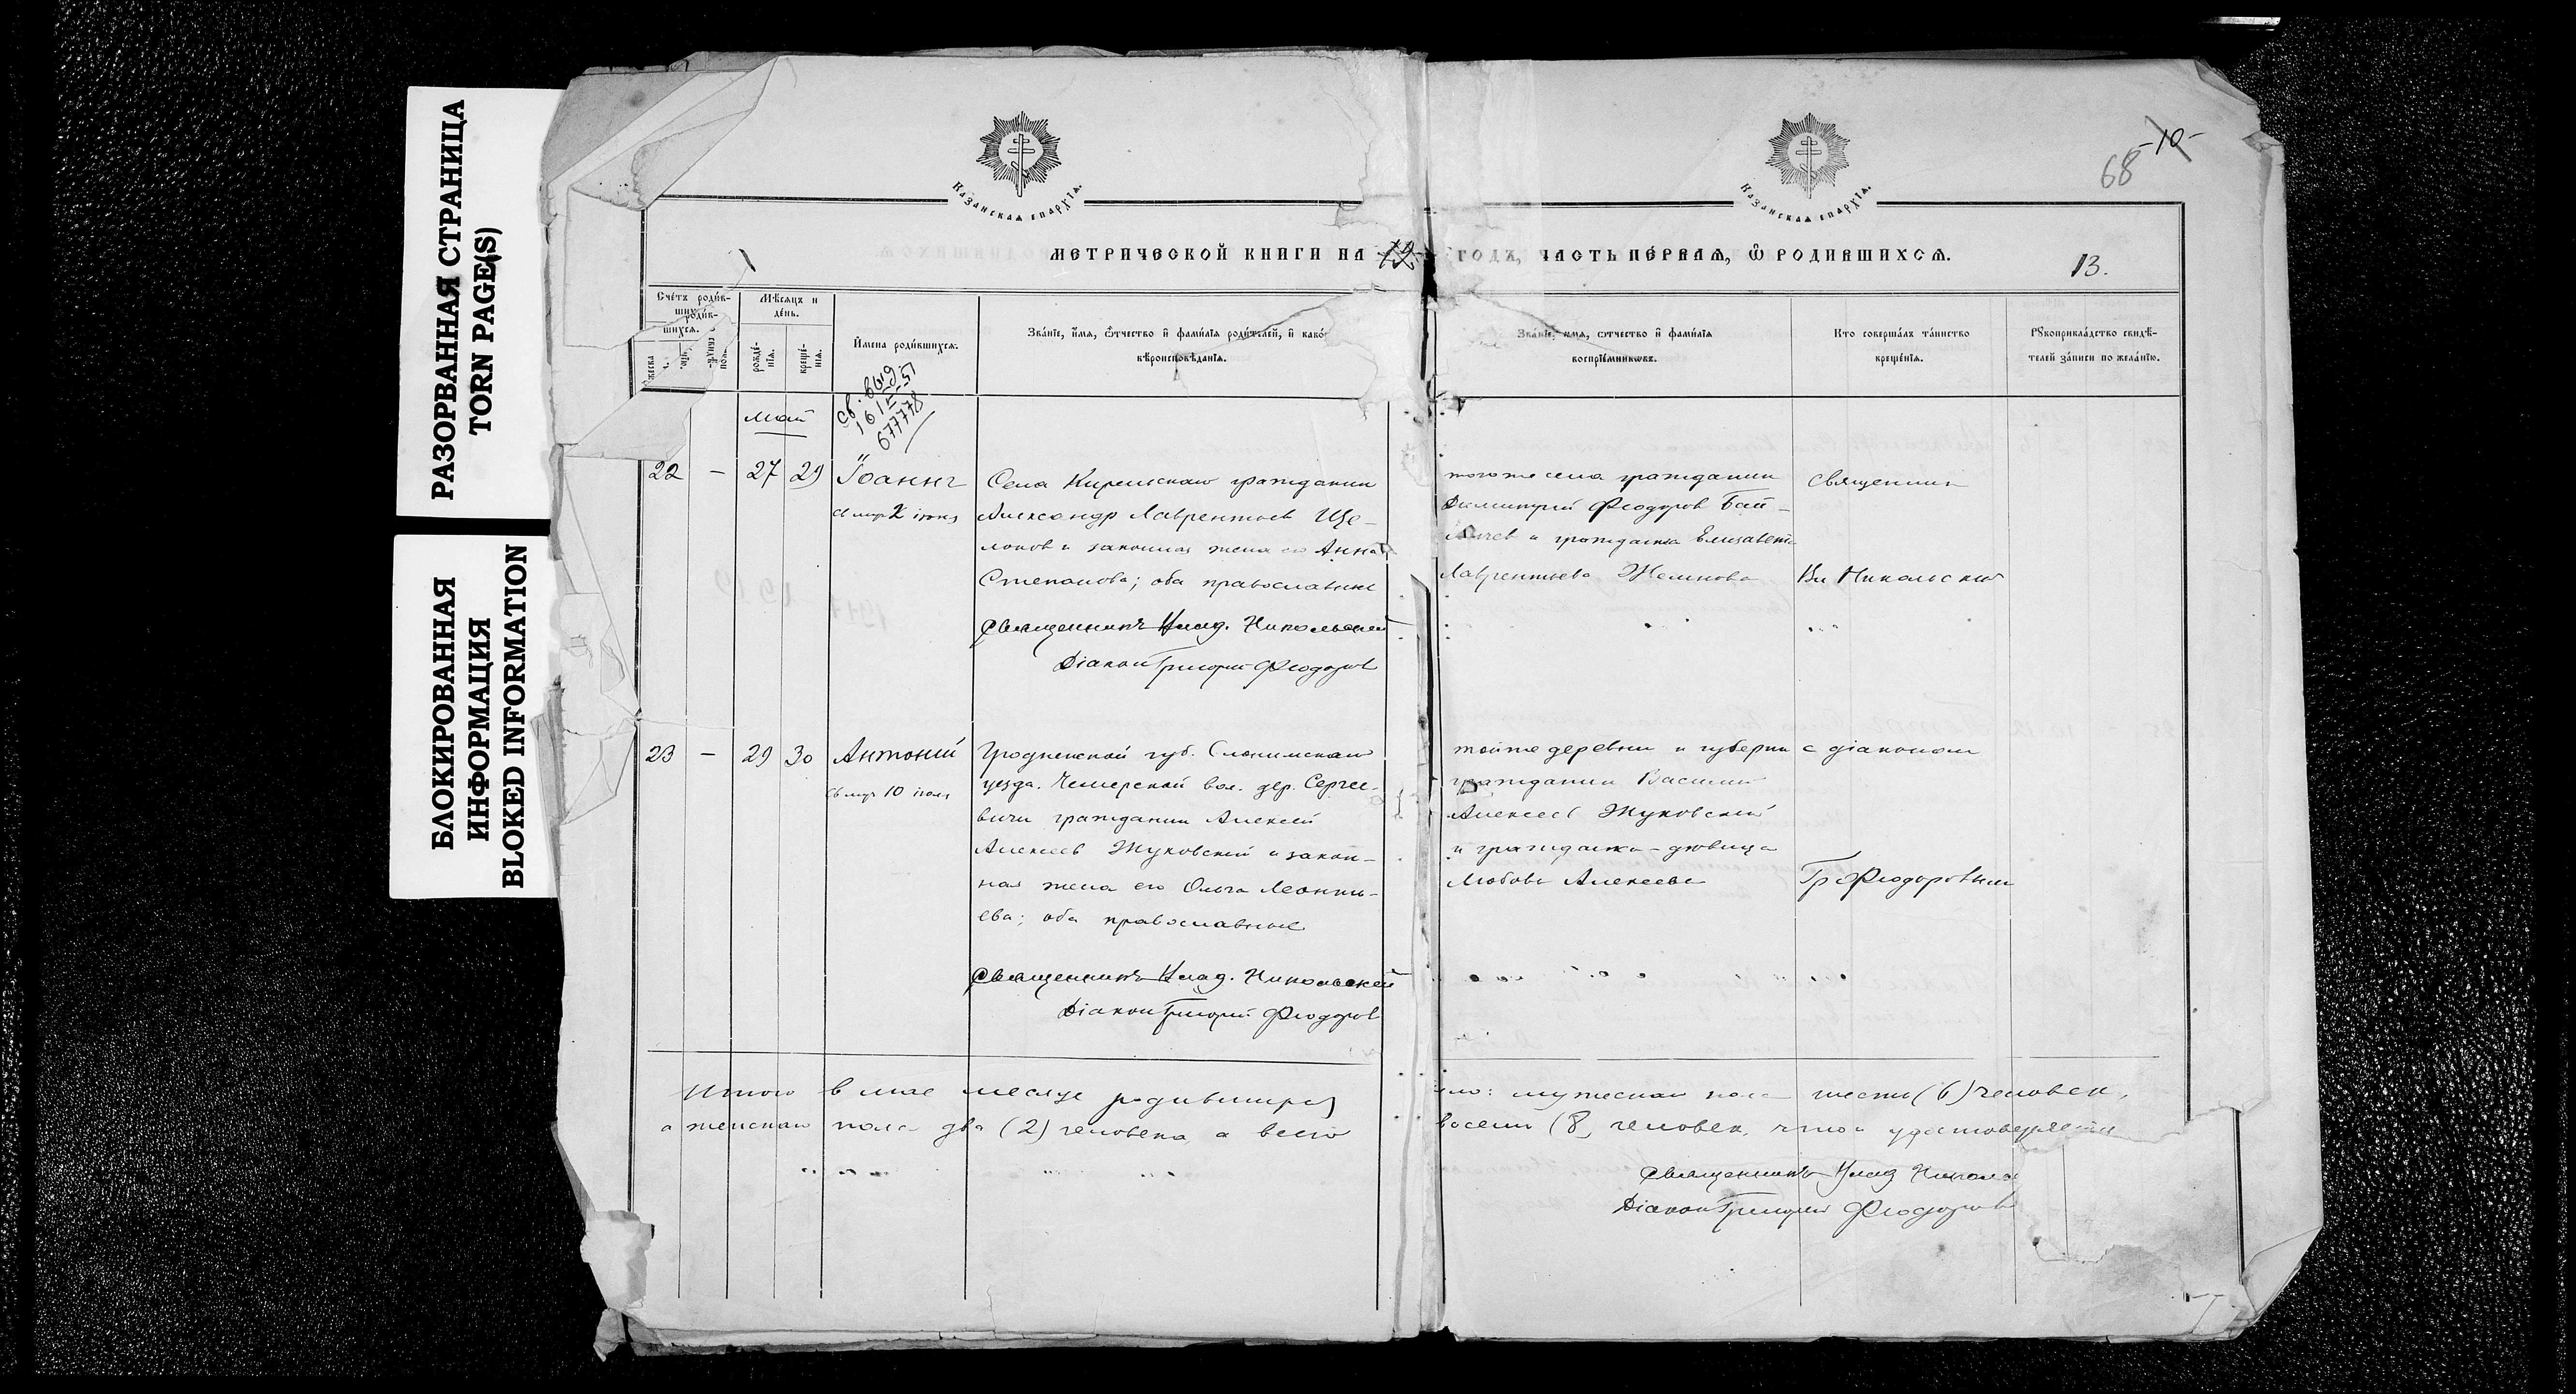 РАЗОРВАННАЯ СТРАНИЦА
TORN PAGE(S)
БЛОКИРОВАННАЯ
ИНФОРМАЦИЯ
BLOKED INFORMATION
Казанская епархія.
Казанская епархія.
-10-
68
МЕТРИЧЕСКОЙ КНИГИ НА 12 ГОДЪ, ЧАСТЬ ПЕ́РВАЯ, Ѽ РОДИВШИХСЯ.
13.
Счётъ роди́в-
шихся.
Мѣсяцъ и
де́нь.
рожде́-
нія.
креще́-
нія.
И́мена роди́вшихся.
Зва́нїе, и́мя, ѻ҆́тчество и҆ фами́лїя роди́телей, и҆ како́
вѣроисповѣ́данїя.
Зва́нїе, имя, ѻтчество и҆ фами́лїя
воспрїе́мниковъ.
Кто соверша́лъ та́инство
креще́нїя.
Рꙋкоприкла́дство свидѣ́-
телей за́писи по жела́нїю.
май
св. выд.
16 IX 51
677778
22 - 27 29 Іоаннъ
Села Киремскаго гражданин
Александр Лаврентьев Ще-
локов и законная жена его Анна
Степанова; оба православные
Священникъ Влад. Никольский
Діакон Григорий Феодоров
тогоже села гражданин
Димитрий Феодоров Бай-
и гражданка Елизавета
Лаврентьева
Священник
Вл Никольский
23 - 29 30 Антоний
Гродненской губ. Слонимскаго
уезда. Чемерской вол. дер. Сергее-
вичи гражданин Алексей
Алексеев Жуковский и закон-
ная жена его Ольга Леонть-
ева; оба православные
Священникъ Влад. Никольский
Діакон Григорий Феодоров
тойже деревни и губернии
гражданин Василий
Алексеев Жуковский
и гражданка-девица
Любовь Алексеева
с діаконом
Гр Феодоровым
Итого в мае месяце родившихся
а женскаго пола два (2) человека, а всего
мужескаго пола шесть (6) человек,
восемь (8) человек, что и удостоверяем
Священникъ Влад Никола
Діакон Григорий Феодоров